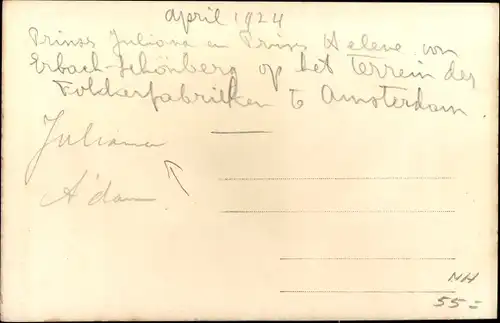 April 1924
Prinses Juliana en Prinses Helene von
Erbach-Schönberg op het terrein der
Fokkerfabrieken te Amsterdam.
Juliana
A'dam
NH
55=